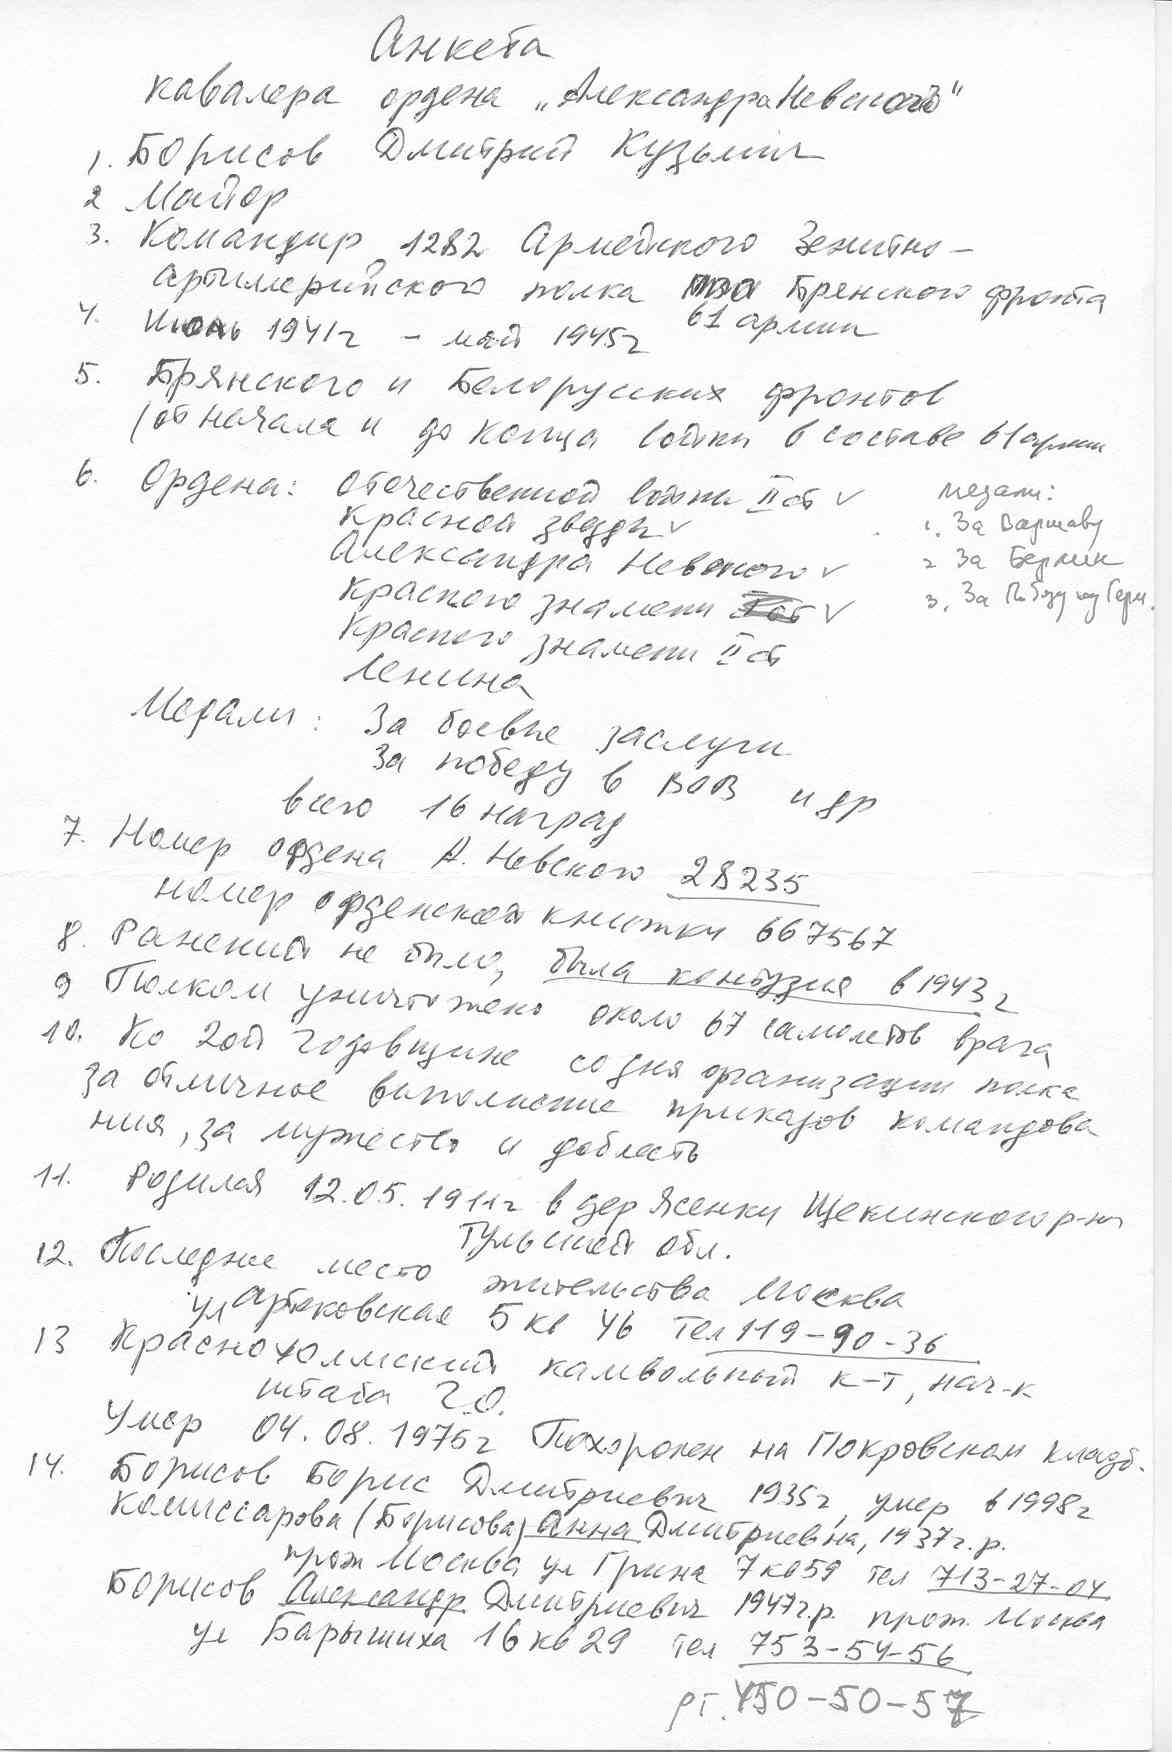 Анкета
кавалера ордена „Александра Невского"
1. Борисов Дмитрий Кузьмич
2 Майор
3. Командир 1282 Армейского Зенитно-
артиллерийского полка Брянского фронта
61 армии
4. Июнь 1941г - май 1945г
5. Брянского и Белорусских фронтов
(от начала и до конца войны в составе 61 армии
6. Ордена: Отечественной войны II ст ✓
Красной звезды ✓
Александра Невского ✓
Красного знамени ✓
Красного знамени II ст
Ленина
медали:
1. За Варшаву
2 За Берлин
3. За Победу над Герм.
Медали: За боевые заслуги
За победу в ВОВ и др
всего 16 наград
7. Номер ордена А. Невского 28235
номер орденской книжки 667567
8. Ранений не было, была контузия в 1943г
9 Полком уничтожено около 67 самолетов врага
10. Ко 2ой годовщине со дня организации полка
за отличное выполнение приказов командова
ния, за мужество и доблесть
11. Родился 12.05.1911г в дер Ясенки Щекинского р-на
Тульской обл.
12. Последнее место жительства Москва
ул Артековская 5 кв 46 тел 119-90-36
13 Краснохолмский камвольный к-т, нач-к
штаба Г.О.
Умер 04.08.1975г Похоронен на Покровском кладб.
14. Борисов Борис Дмитриевич 1935г, умер в 1998г
Комиссарова (Борисова) Анна Дмитриевна, 1937г.р.
прож Москва ул Грина 7 кв 59 тел 713-27-04
Борисов Александр Дмитриевич 1947г.р. прож. Москва
ул Барышиха 16 кв 29 тел 753-54-56
рт. 450-50-57